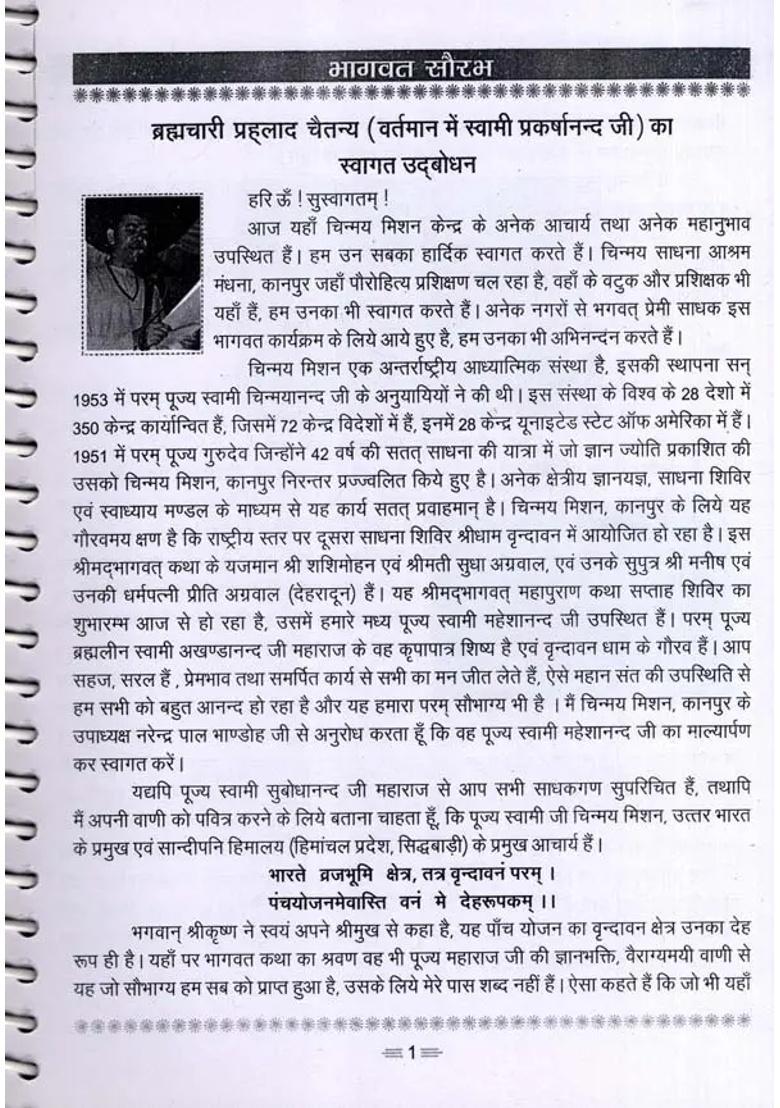 भागवत सौरभ
ब्रह्मचारी प्रह्लाद चैतन्य (वर्तमान में स्वामी प्रकर्षानन्द जी) का
स्वागत उद्‌बोधन
हरि ऊँ ! सुस्वागतम् !
आज यहाँ चिन्मय मिशन केन्द्र के अनेक आचार्य तथा अनेक महानुभाव
उपस्थित हैं। हम उन सबका हार्दिक स्वागत करते हैं। चिन्मय साधना आश्रम
मंधना, कानपुर जहाँ पौरोहित्य प्रशिक्षण चल रहा है, वहाँ के वटुक और प्रशिक्षक भी
यहाँ हैं, हम उनका भी स्वागत करते हैं। अनेक नगरों से भगवत् प्रेमी साधक इस
भागवत कार्यक्रम के लिये आये हुए है, हम उनका भी अभिनन्दन करते हैं।
चिन्मय मिशन एक अन्तर्राष्ट्रीय आध्यात्मिक संस्था है, इसकी स्थापना सन्
1953 में परम् पूज्य स्वामी चिन्मयानन्द जी के अनुयायियों ने की थी। इस संस्था के विश्व के 28 देशो में
350 केन्द्र कार्यान्वित हैं, जिसमें 72 केन्द्र विदेशों में हैं, इनमें 28 केन्द्र यूनाइटेड स्टेट ऑफ अमेरिका में हैं।
1951 में परम् पूज्य गुरुदेव जिन्होंने 42 वर्ष की सतत् साधना की यात्रा में जो ज्ञान ज्योति प्रकाशित की
उसको चिन्मय मिशन, कानपुर निरन्तर प्रज्ज्वलित किये हुए है। अनेक क्षेत्रीय ज्ञानयज्ञ, साधना शिविर
एवं स्वाध्याय मण्डल के माध्यम से यह कार्य सतत् प्रवाहमान् है। चिन्मय मिशन, कानपुर के लिये यह
गौरवमय क्षण है कि राष्ट्रीय स्तर पर दूसरा साधना शिविर श्रीधाम वृन्दावन में आयोजित हो रहा है। इस
श्रीमद्‌भागवत् कथा के यजमान श्री शशिमोहन एवं श्रीमती सुधा अग्रवाल, एवं उनके सुपुत्र श्री मनीष एवं
उनकी धर्मपत्नी प्रीति अग्रवाल (देहरादून) हैं। यह श्रीमद्‌भागवत् महापुराण कथा सप्ताह शिविर का
शुभारम्भ आज से हो रहा है, उसमें हमारे मध्य पूज्य स्वामी महेशानन्द जी उपस्थित हैं। परम् पूज्य
ब्रह्मलीन स्वामी अखण्डानन्द जी महाराज के वह कृपापात्र शिष्य है एवं वृन्दावन धाम के गौरव हैं। आप
सहज, सरल हैं , प्रेमभाव तथा समर्पित कार्य से सभी का मन जीत लेते हैं, ऐसे महान संत की उपस्थिति से
हम सभी को बहुत आनन्द हो रहा है और यह हमारा परम् सौभाग्य भी है । मैं चिन्मय मिशन, कानपुर के
उपाध्यक्ष नरेन्द्र पाल भाण्डोह जी से अनुरोध करता हूँ कि वह पूज्य स्वामी महेशानन्द जी का माल्यार्पण
कर स्वागत करें।
यद्यपि पूज्य स्वामी सुबोधानन्द जी महाराज से आप सभी साधकगण सुपरिचित हैं, तथापि
मैं अपनी वाणी को पवित्र करने के लिये बताना चाहता हूँ, कि पूज्य स्वामी जी चिन्मय मिशन, उत्तर भारत
के प्रमुख एवं सान्दीपनि हिमालय (हिमांचल प्रदेश, सिद्धबाड़ी) के प्रमुख आचार्य हैं।
भारते व्रजभूमि क्षेत्र, तत्र वृन्दावनं परम् ।
पंचयोजनमेवास्ति वनं मे देहरूपकम् ।।
भगवान् श्रीकृष्ण ने स्वयं अपने श्रीमुख से कहा है, यह पाँच योजन का वृन्दावन क्षेत्र उनका देह
रूप ही है। यहाँ पर भागवत कथा का श्रवण वह भी पूज्य महाराज जी की ज्ञानभक्ति, वैराग्यमयी वाणी से
यह जो सौभाग्य हम सब को प्राप्त हुआ है, उसके लिये मेरे पास शब्द नहीं हैं। ऐसा कहते हैं कि जो भी यहाँ
1